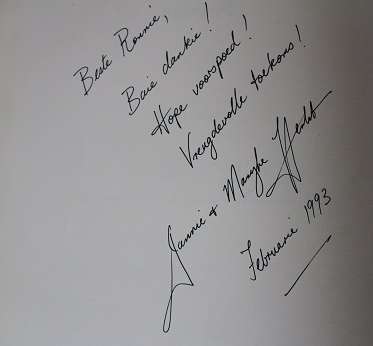 Beste Ronnie,
Baie dankie!
Hope voorspoed!
Vreugdevolle toekoms!
Jannie & Maryke
Februarie 1993